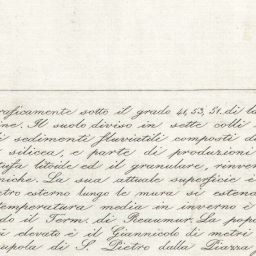 raficamente sotto il grado 41, 53, 51. di la
ne. Il suolo diviso in sette colli
i sedimenti fluviatili composti d
silicea, e parte di produzioni
tufa litoide ed il granulare, rinven
niche. La sua attuale superficie è
etro esterno lungo le mura si estend
temperatura media in inverno è
do il Term. di Reaumur. La popo
ù elevato è il Giannicolo di metri
upola di S. Pietro dalla Piazza